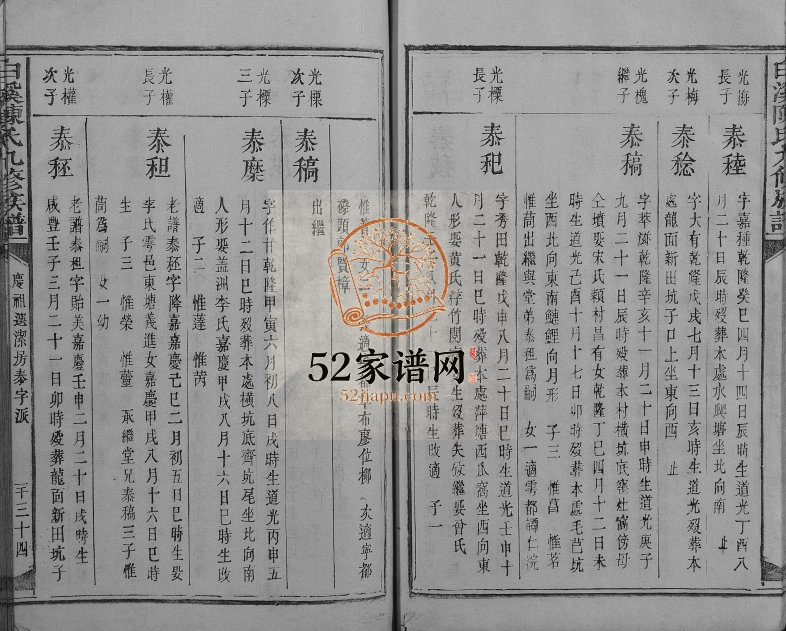 白溪陳氏九修族譜
光海
長子
泰稑
字嘉種乾隆癸巳四月十四日辰時生道光丁酉八
月二十日辰時殁葬本處水爬塘坐北向南 止
光梅
次子
泰稔
字大有乾隆戊戌七月十三日亥時生道光殁葬本
處龍面新田坑子口上坐東向西 止
光槐
繼子
泰稿
字華 乾隆辛亥十一月二十日申時生道光庚子
九月二十一日辰時殁葬本村橫坑 窰灶 傍母
仝墳娶宋氏賴村昌有女乾隆丁巳四月十二日未
時生道光己酉十月十七日卯時殁葬本處毛芭坑
坐西向北向東南鰱鯉向月形 子三 惟菖 惟茗
惟荷出繼與堂弟泰租爲嗣 女一適雩都譚仁浣
光櫟
長子
泰秜
字秀田乾隆戊申八月二十日巳時生道光壬申十
月二十一日巳時殁葬本處萍塘西瓜窩坐西向東
人形娶黃氏浮竹 生殁葬失攷繼娶曾氏
乾隆 時生敗適 子一
惟 女 適 布廖位柳 次適寧都
磜頭 賢樟
光櫟
次子
泰稿
出繼
光櫟
三子
泰穈
字作甘乾隆甲寅六月初八日戌時生道光丙申五
月十二日戌時殁葬本處橫坑底齊坑尾坐北向南
人形娶盖洲李氏嘉慶甲戌八月十六日巳時生敗
適 子二 惟蓬 惟芮
光權
長子
泰租
老譜泰秠字降嘉嘉慶己巳二月初五日巳時生娶
李氏雩邑東塘義進女嘉慶甲戌八月十六日巳時
生 子三 惟榮 惟薑 承繼堂兄泰稿三子惟
荷爲嗣 女一幼
光權
次子
泰秠
老譜泰租字貽美嘉慶壬申二月二十日戌時生
咸豐壬子三月二十一日卯時殁葬龍面新田坑子
白溪陳氏九修族譜
慶祖選潔坊泰字派
一千三十四
52家谱网
52jiapu.com